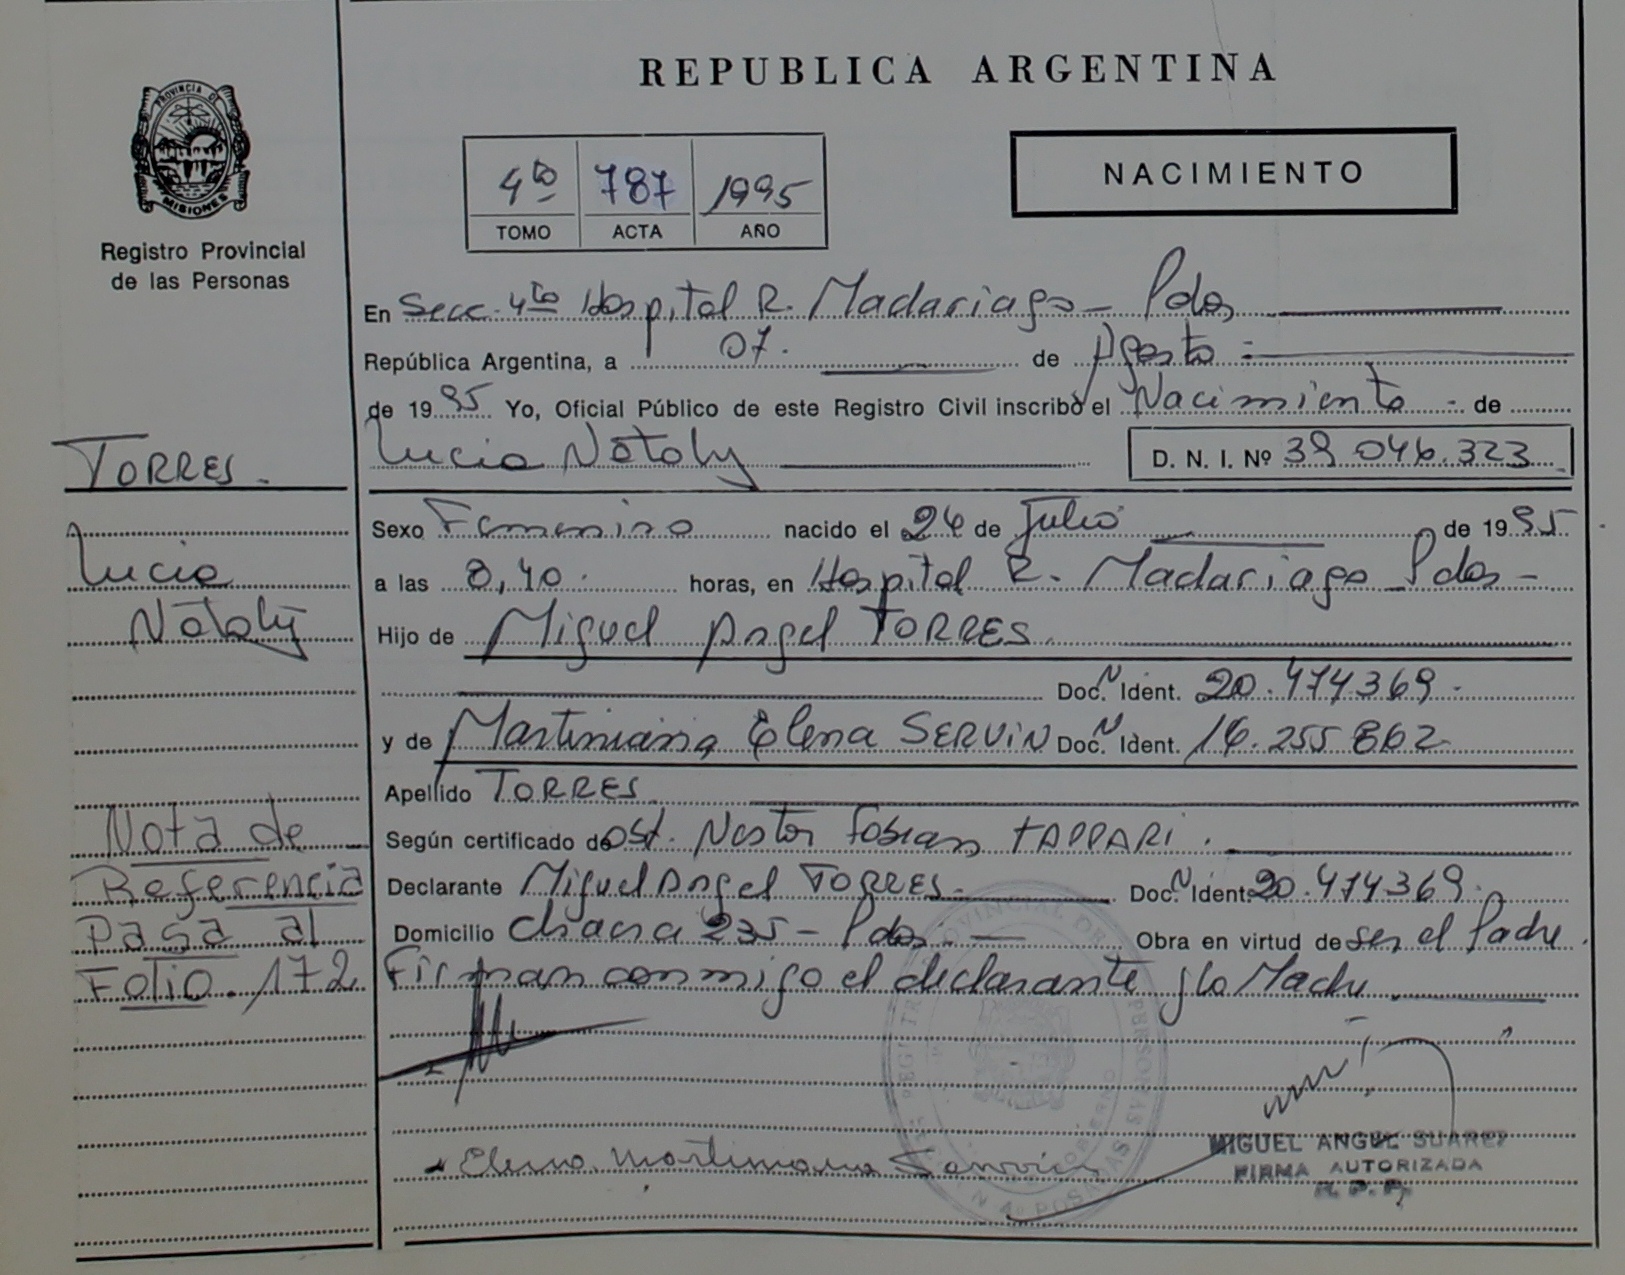 REPUBLICA ARGENTINA
PROVINCIA DE
MISIONES
Registro Provincial
de las Personas
4to 787 1995
TOMO ACTA AÑO
NACIMIENTO
En Secc. 4to Hospital R. Madariaga - Pdas
República Argentina, a 07. de Agosto
de 1995 Yo, Oficial Público de este Registro Civil inscribo el Nacimiento - de
Lucia Nataly D. N. I. Nº 39.046.323
TORRES.
Lucia
Nataly
Sexo Femenino nacido el 24 de Julio de 1995
a las 8,40. horas, en Hospital R. Madariaga Pdas -
Hijo de Miguel Angel TORRES
Doc. N Ident. 20.474369.
y de Martiniana Elena SERVIN Doc. N Ident. 16.255 862
Apellido TORRES
Según certificado de Ost. Nestor Fabian TAPPARI.
Declarante Miguel Angel TORRES. Doc. N Ident. 20.474369.
Domicilio Chacra 235 - Pdas. Obra en virtud de ser el Padre.
Firman conmigo el declarante y la Madre
Nota de
Referencia
Pasa al
Folio 172
Elena Martiniana
MIGUEL ANGEL SUAREZ
FIRMA AUTORIZADA
R. P. P.